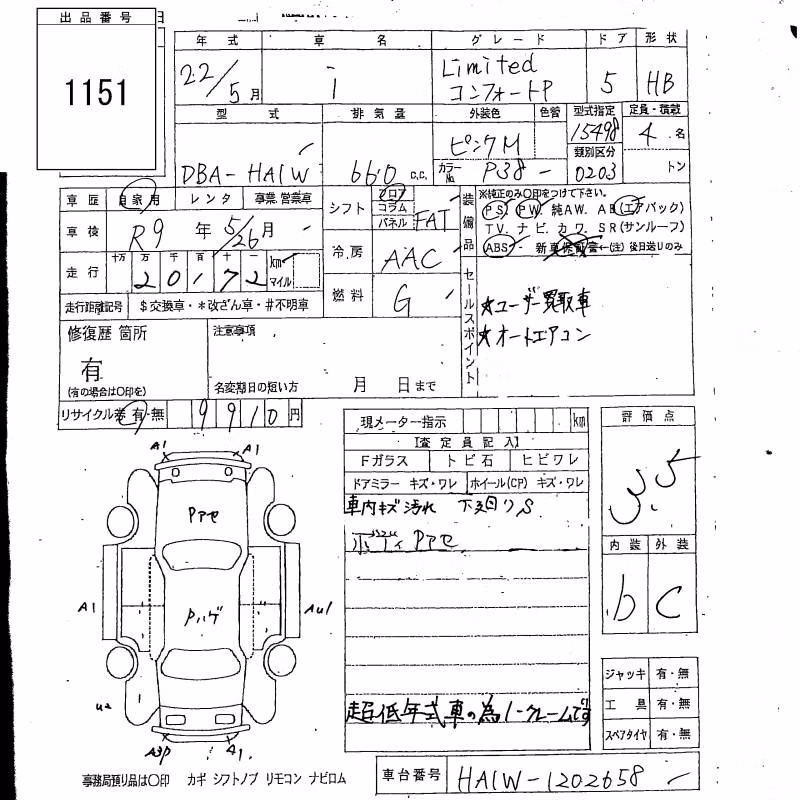 出品番号
1151
年式 車名 グレード ドア 形状
22/5月 i Limited コンフォートP 5 HB
型式 排気量 外装色 色替 型式指定 定員・積載
DBA-HA1W 660 c.c. ピンクM 15498 4名
カラーNo. P38 類別区分 0203 トン
車歴 自家用 レンタ 事業 営業車
シフト フロア コラム パネル FAT
装備品 ※純正のみ○印をつけて下さい。
PS. PW. 純AW. AB(エアバック)
TV. ナビ. カワ. SR(サンルーフ)
ABS 新車保証書←(注)後日送りのみ
車検 R9年 5/26月
冷房 AAC
走行 十万 万 千 百 十 一
20172 km マイル
燃料 G
走行距離記号 $交換車・*改ざん車・#不明車
セールスポイント
★ユーザー買取車
★オートエアコン
修復歴 箇所
有
(有の場合は○印を)
注意事項
名変期日の短い方 月 日まで
リサイクル券 有・無 9910円
現メーター指示 km
評価点
3.5
【査定員記入】
Fガラス トビ石 ヒビワレ
ドアミラー キズ・ワレ ホイール(CP) キズ・ワレ
車内キズ汚れ 下廻りS
ボディPアセ
内装 外装
b C
A1 A1
Pアセ
A1 Pハゲ AU1
U2
A3P A1
超低年式車の為ノークレームです
ジャッキ 有・無
工具 有・無
スペアタイヤ 有・無
事務局預り品は○印 カギ シフトノブ リモコン ナビロム
車台番号 HA1W-1202658